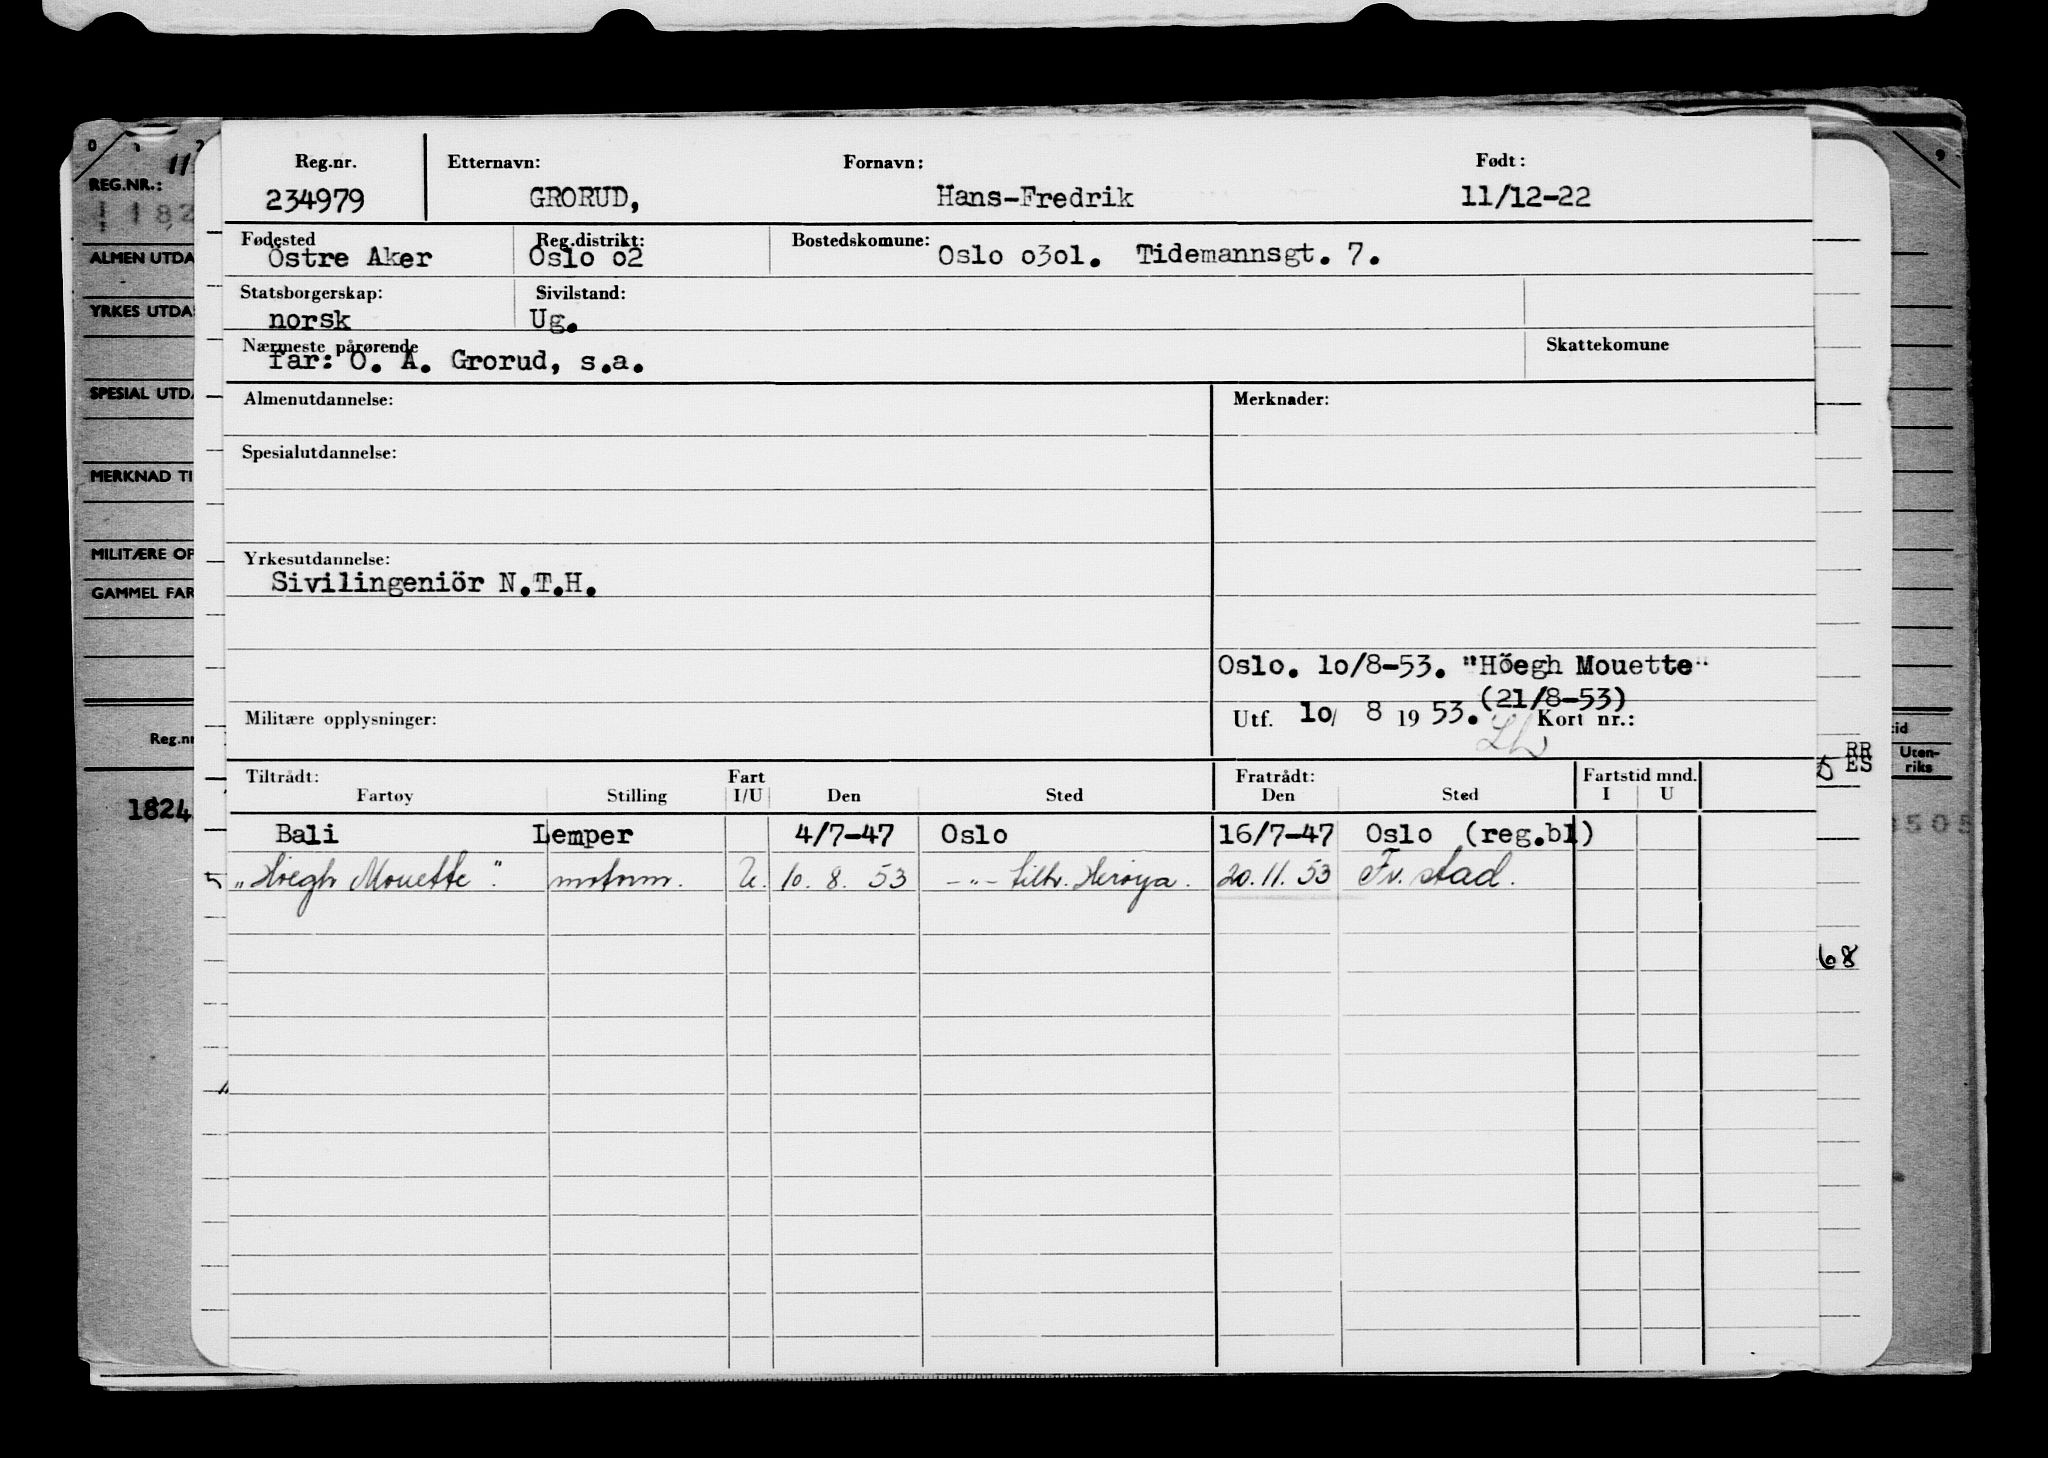 REG.NR.:
ALMEN UTDA
YRKES UTDA
SPESIAL UTDA
MERKNAD TI
MILITÆRE OP
GAMMEL FAR
Reg.nr
1824
Reg.nr. Etternavn: Fornavn: Født:
234979 GRORUD, Hans-Fredrik 11/12-22
Fødested Reg.distrikt: Bostedskomune:
Östre Aker Oslo o2 Oslo o3ol. Tidemannsgt. 7.
Statsborgerskap: Sivilstand:
norsk Ug.
Nærmeste pårørende Skattekomune
far: O. A. Grorud, s.a.
Almenutdannelse: Merknader:
Spesialutdannelse:
Yrkesutdannelse:
Sivilingeniör N.T.H.
Oslo. lo/8-53. "Höegh Mouette"
(21/8-53)
Militære opplysninger: Utf. lo/ 8 19 53. Kort nr.:
Tiltrådt: Fart Fratrådt: Fartstid mnd.
Fartøy Stilling I/U Den Sted Den Sted I U
Bali Lemper 4/7-47 Oslo 16/7-47 Oslo (reg.bl)
„Höegh Mouette". motorm. U. 10. 8. 53 -"- tilh. Herøya. 20. 11. 53 Fr. stad.
RR
ES
tid
Uten-
riks
68